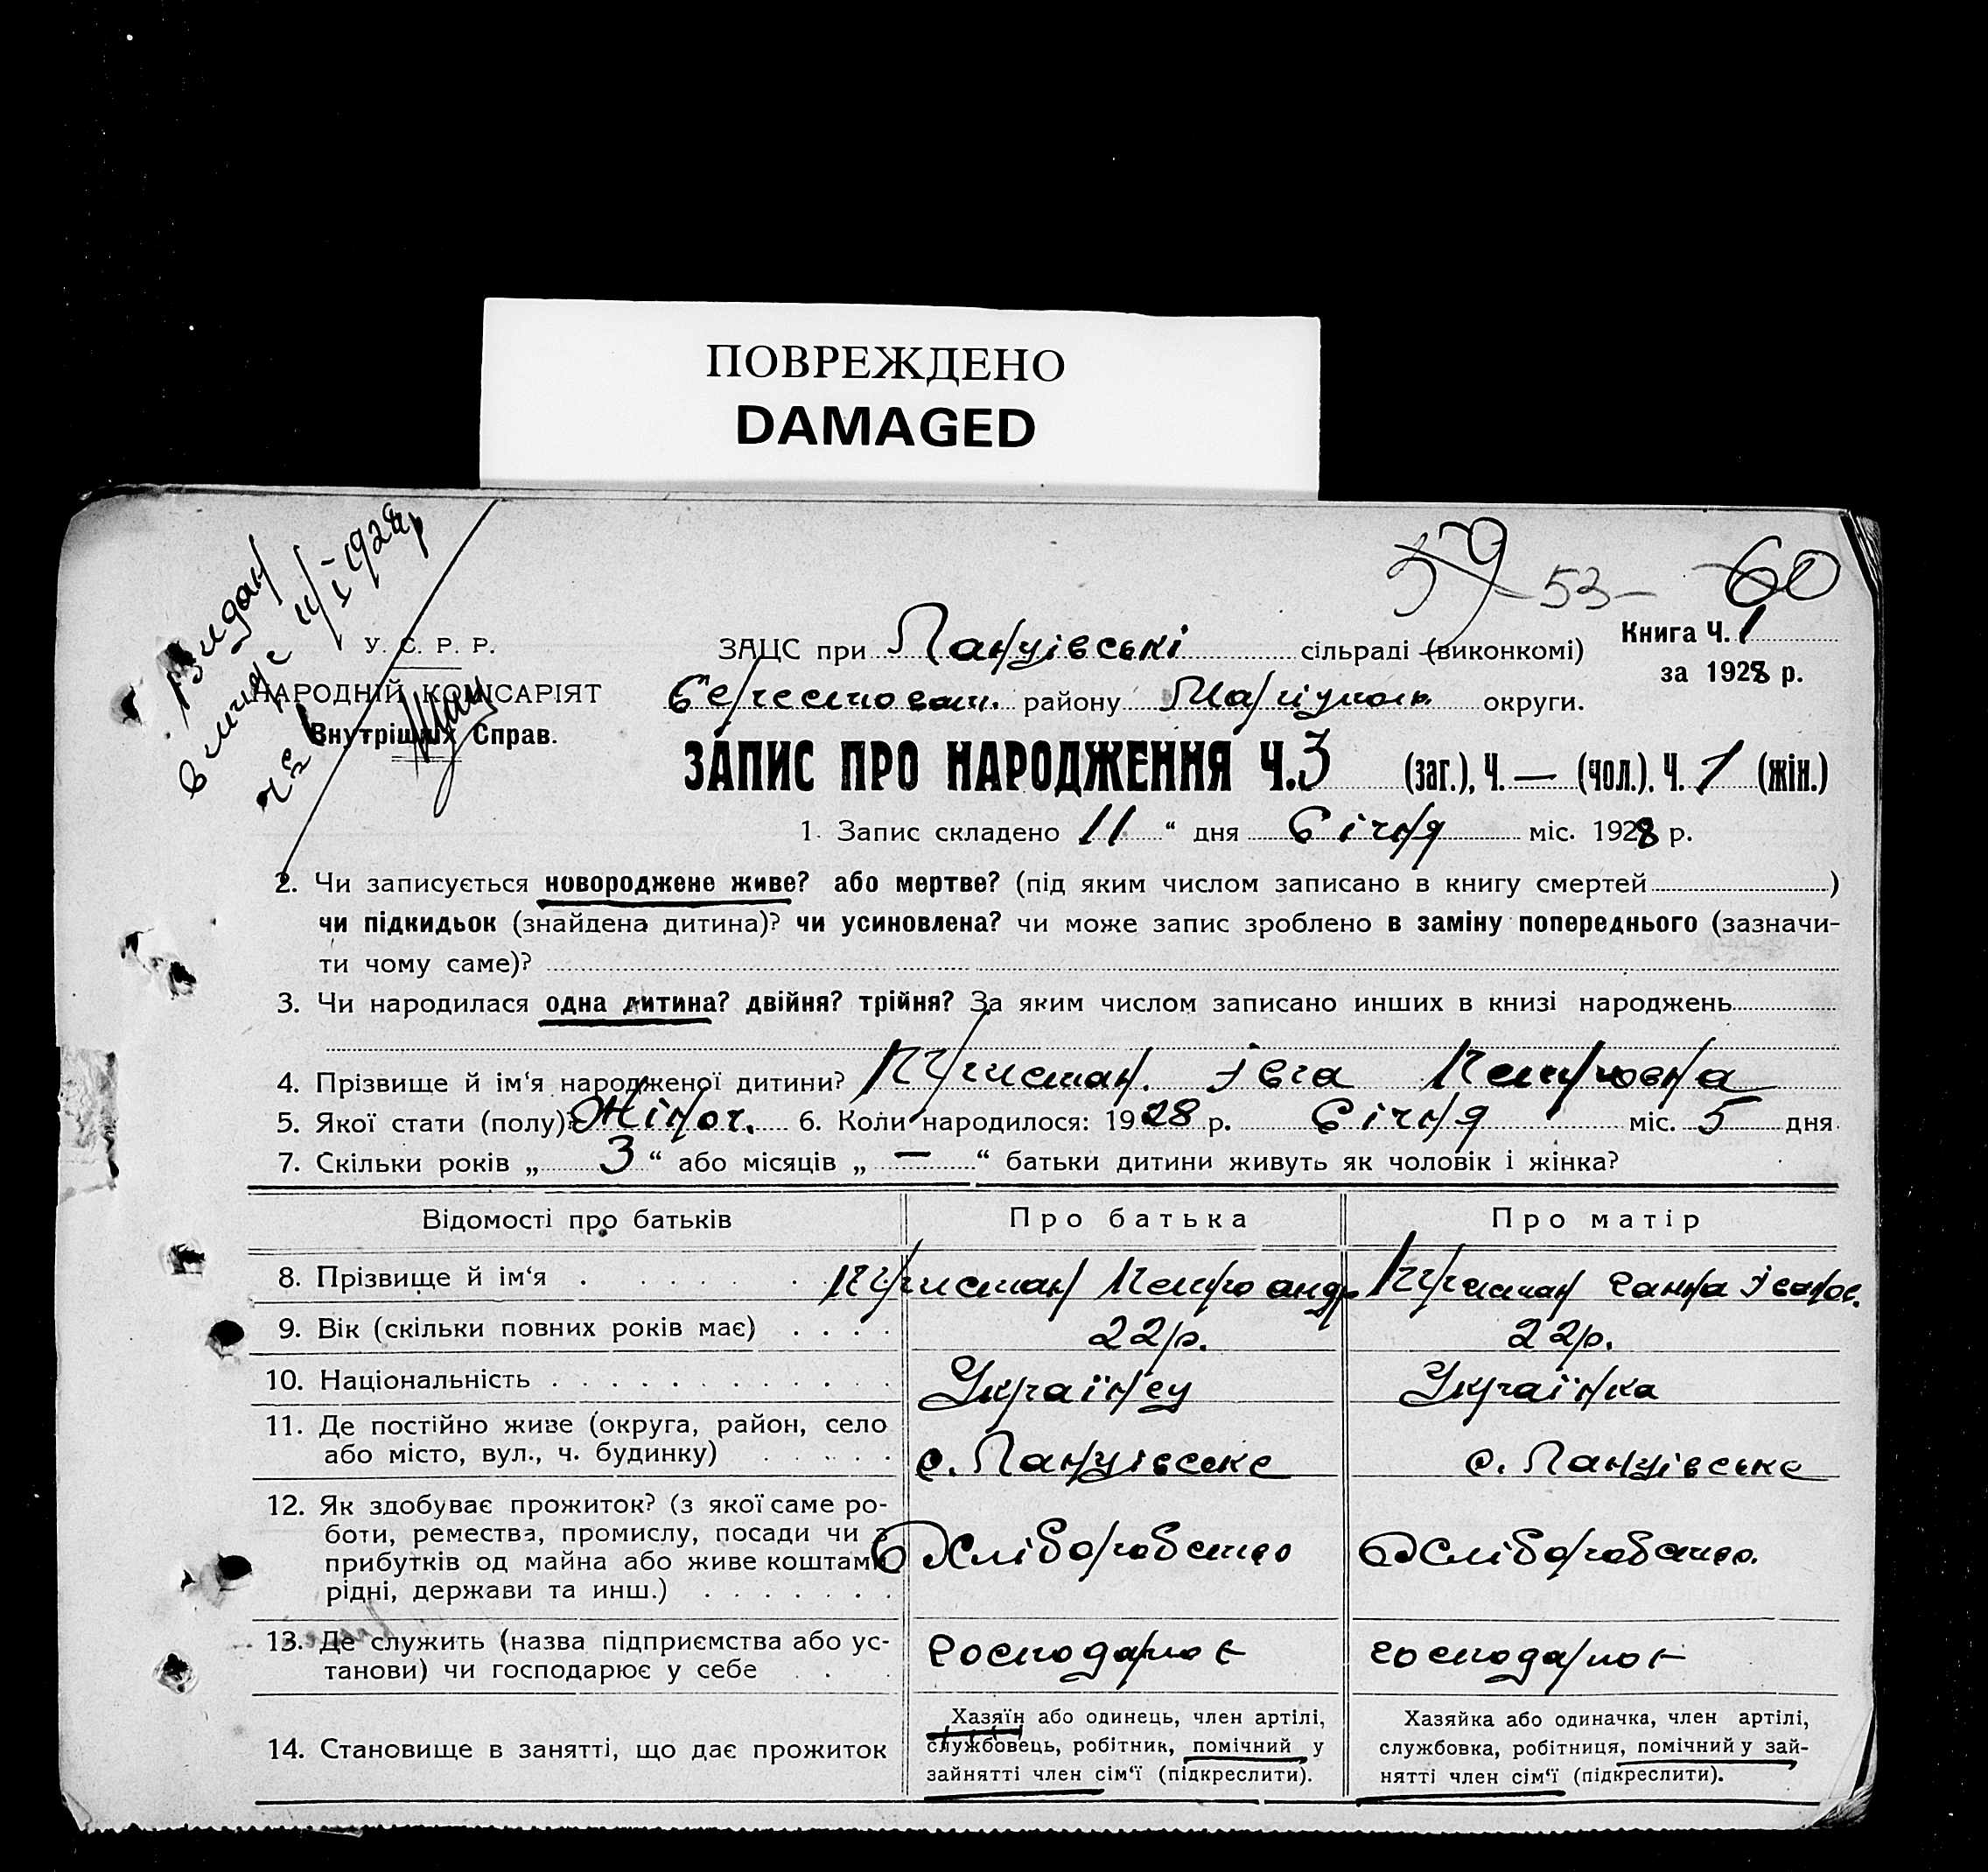 ПОВРЕЖДЕНО
DAMAGED
59 53 60
Видан
випис 11/I 1928 р
У. С. Р. Р.
НАРОДНІЙ КОМІСАРІЯТ
Внутрішніх Справ.
ЗАЦС при Ланцівські сільраді (виконкомі)
Книга Ч. 1
за 1928 р.
району Маріуполь округи.
ЗАПИС ПРО НАРОДЖЕННЯ Ч. 3 (заг.), Ч. — (чол.), Ч. 1 (жін.)
1. Запис складено 11 “ дня Січня міс. 1928 р.
2. Чи записується новороджене живе? або мертве? (під яким числом записано в книгу смертей )
чи підкидьок (знайдена дитина)? чи усиновлена? чи може запис зроблено в заміну попереднього (зазначи-
ти чому саме)?
3. Чи народилася одна дитина? двійня? трійня? За яким числом записано инших в книзі народжень
4. Прізвище й ім‘я народженої дитини? Пристан. Івга Петровна
5. Якої стати (полу)? Жіноч. 6. Коли народилося: 1928 р. Січня міс. 5 дня
7. Скільки років „ 3 “ або місяців „ — “ батьки дитини живуть як чоловік і жінка?
Відомості про батьків Про батька Про матір
8. Прізвище й ім‘я Пристан Петро андр. Пристан Ганна Іванов.
9. Вік (скільки повних років має) 22 р. 22 р.
10. Національність Українец Українка
11. Де постійно живе (округа, район, село
або місто, вул., ч. будинку) с. Ланцівське с. Ланцівське
12. Як здобуває прожиток? (з якої саме ро-
боти, ремества, промислу, посади чи з
прибутків од майна або живе коштами
рідні, держави та инш.) Хліборобство Хліборобство.
13. Де служить (назва підприємства або ус-
танови) чи господарює у себе господарює господарює
14. Становище в занятті, що дає прожиток
Хазяїн або одинець, член артілі,
службовець, робітник, помічний у
зайнятті член сім‘ї (підкреслити).
Хазяйка або одиначка, член артілі,
службовка, робітниця, помічний у зай-
нятті член сім‘ї (підкреслити).